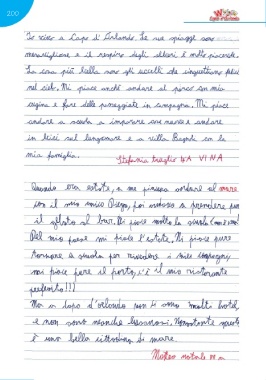 200
Io vivo a Capo d'Orlando. Le sue spiagge sono
meravigliose e il respiro degli alberi è molto piacevole.
La cosa più bella sono gli uccelli che cinguettano felici
nel cielo. Mi piace anche andare al parco con mia
cugina e fare delle passeggiate in campagna. Mi piace
andare a scuola a imparare cose nuove e andare
in bici sul lungomare e a villa Bagnoli con la
mia famiglia.
Stefania 4A VINA
Quando era estate, a me piaceva andare al mare
con il mio amico Diego, poi andavo a prendere
il gelato al bar. Mi piace molto la scuola
Del mio paese mi piace l'estate. Mi piace pure
tornare a scuola per rivedere i miei compagni
mi piace pure il porto, c'è il mio ristorante
preferito!!!
Ma a Capo d'Orlando non ci sono molti hotel
e non sono neanche lussuosi. Nonostante questo
è una bella cittadina di mare
Matteo Natale